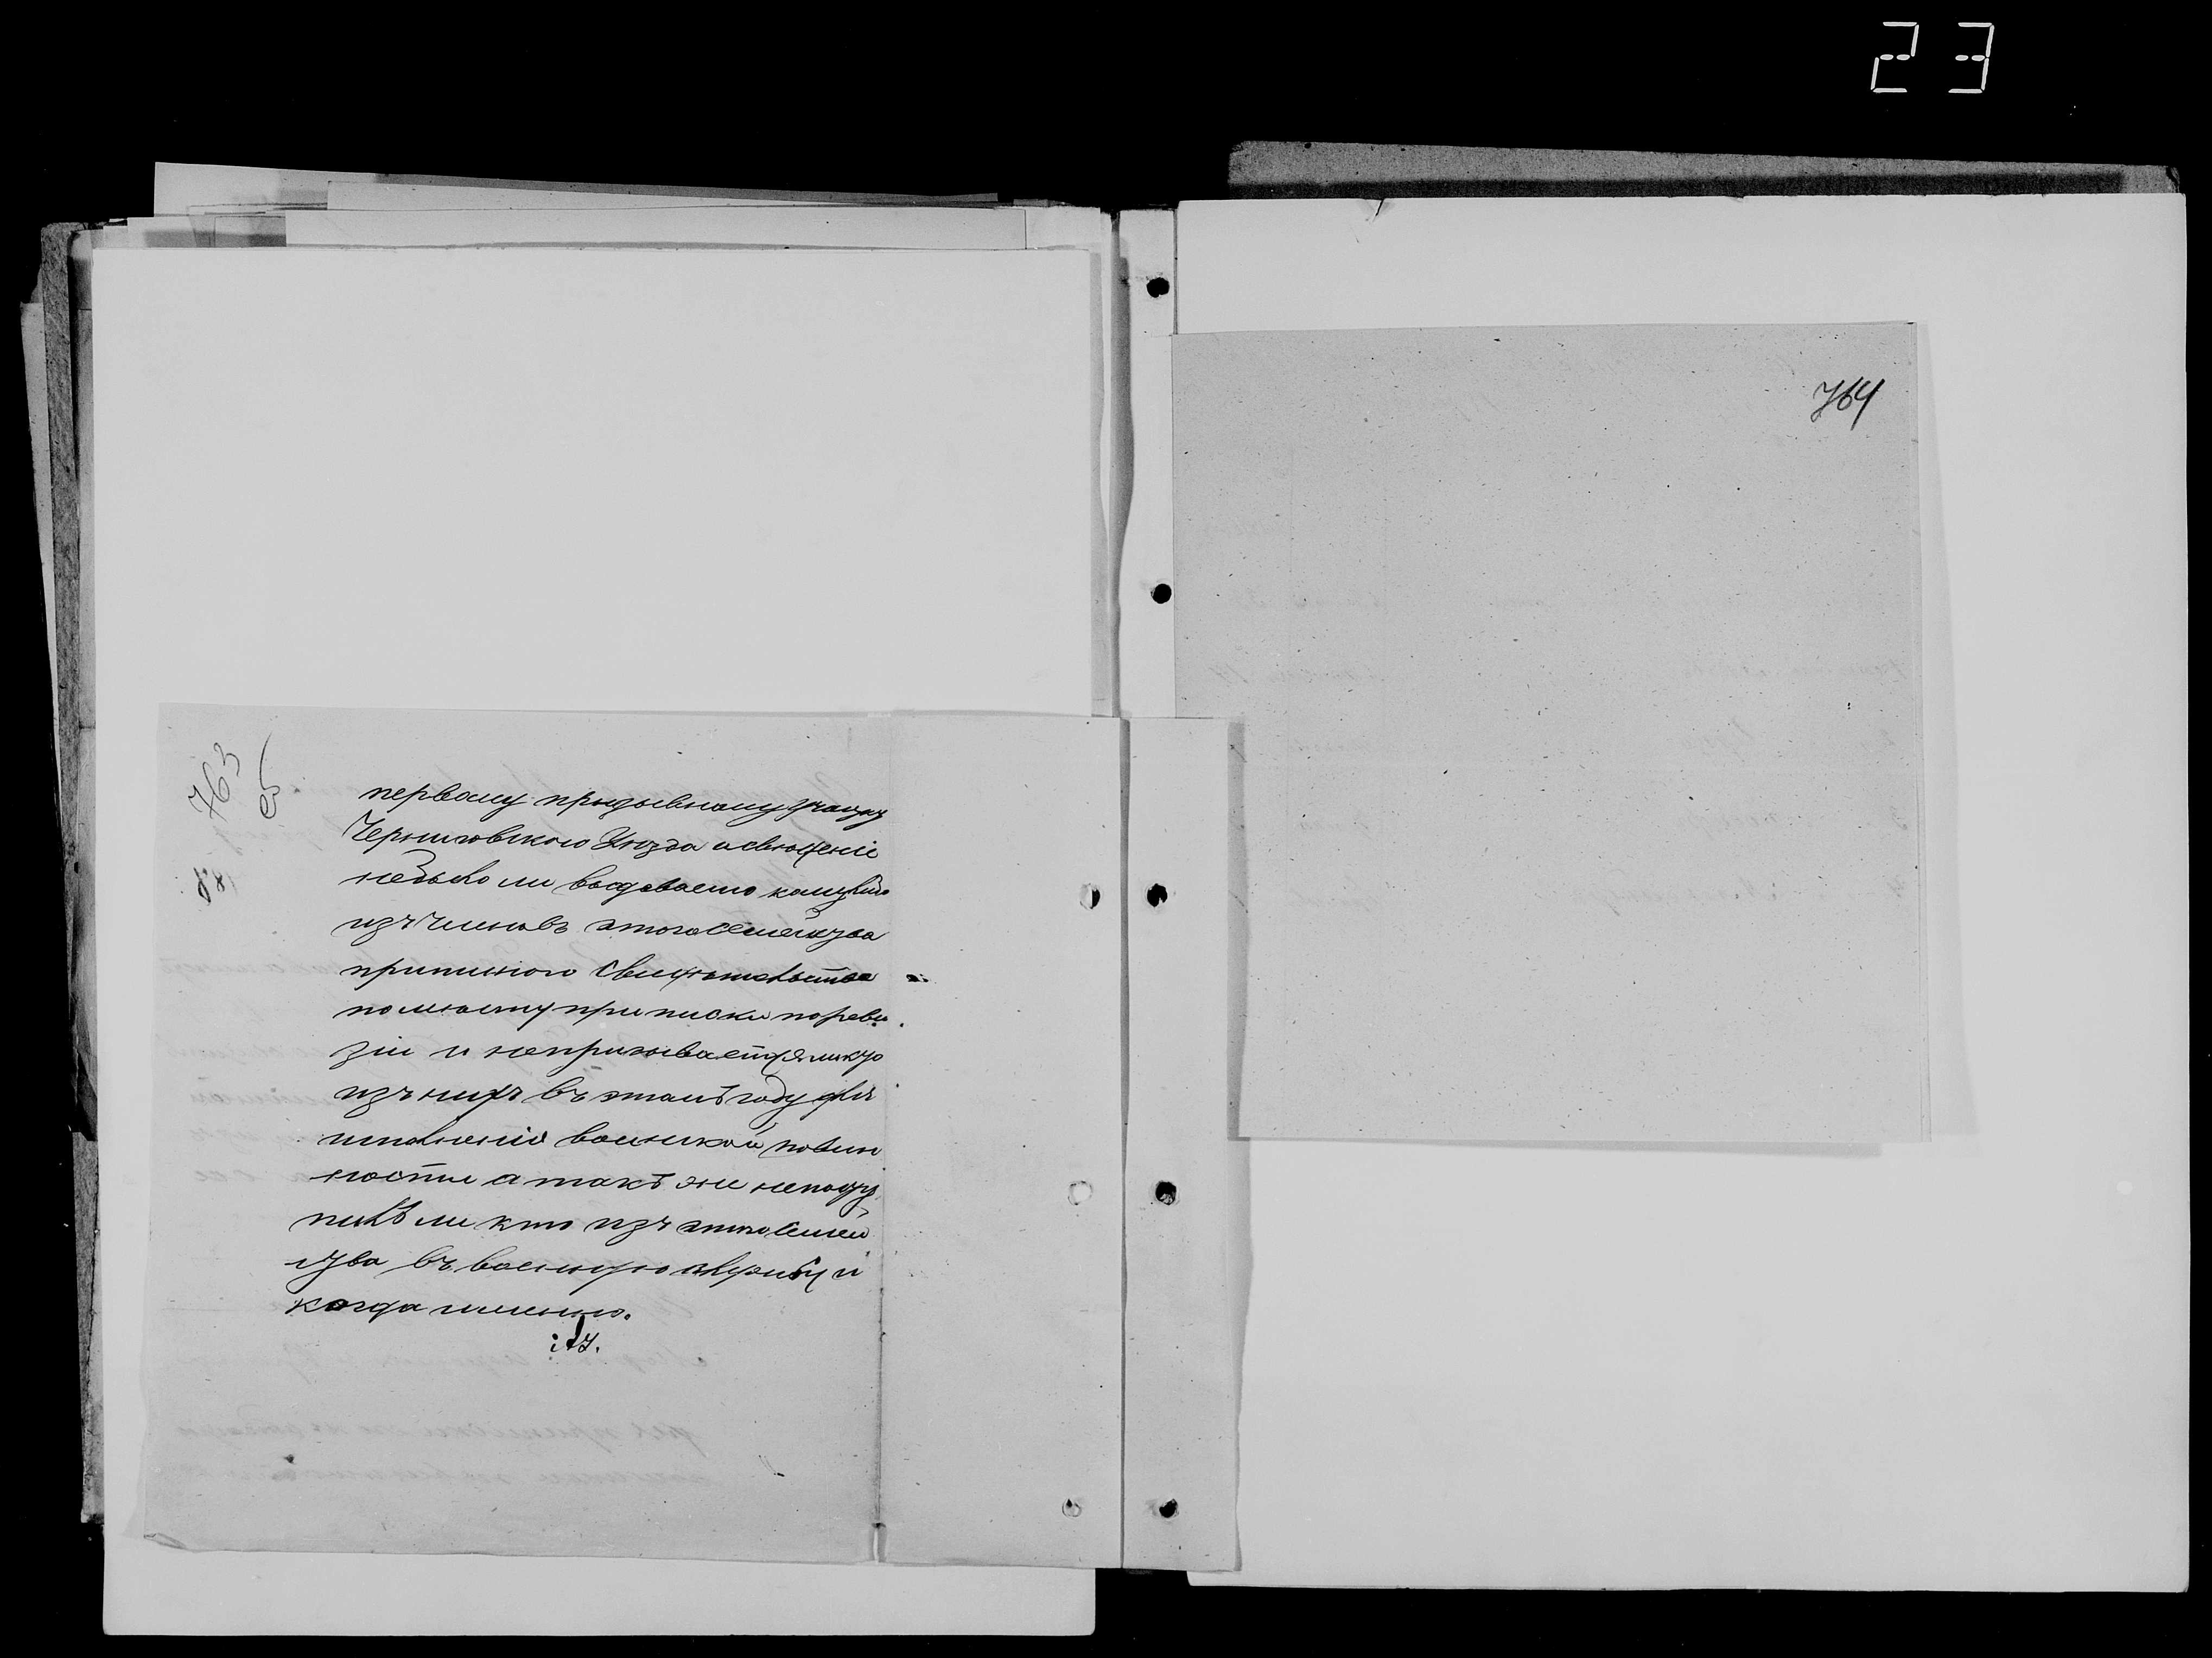 23
763
об
88
первому призывному учаску
Черниговского Уезда и свѣденiе
небыло ли выдаваемо комулибо
изъ членовъ этого семейства
приписного свидѣтельства
по мѣсту приписки по реви
зiи и непризывается ли кто
изъ нихъ въ этомъ году для
исполненiя воинской повин
ности а такъ же непосту
пилъ ли кто изъ этого семей
ства въ военную службу и
когда именно.
764